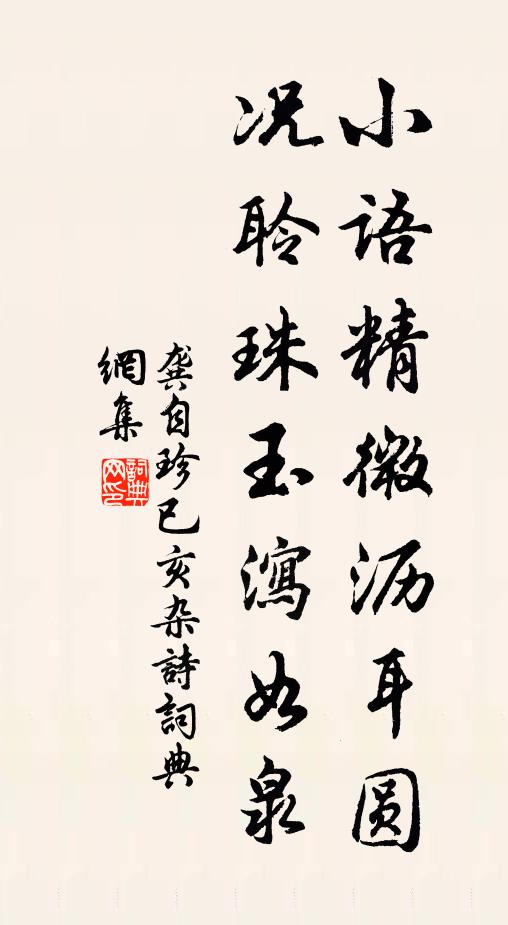 小语精微沥耳圆
况聆珠玉泻如泉
龚自珍己亥杂詩詞典
網集
詞典網印